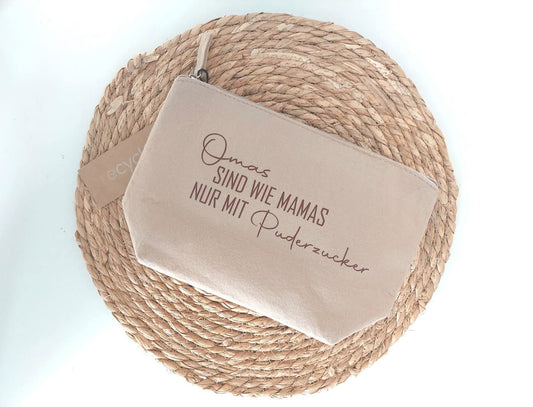 Omas
SIND WIE MAMAS
NUR MIT Puderzucker